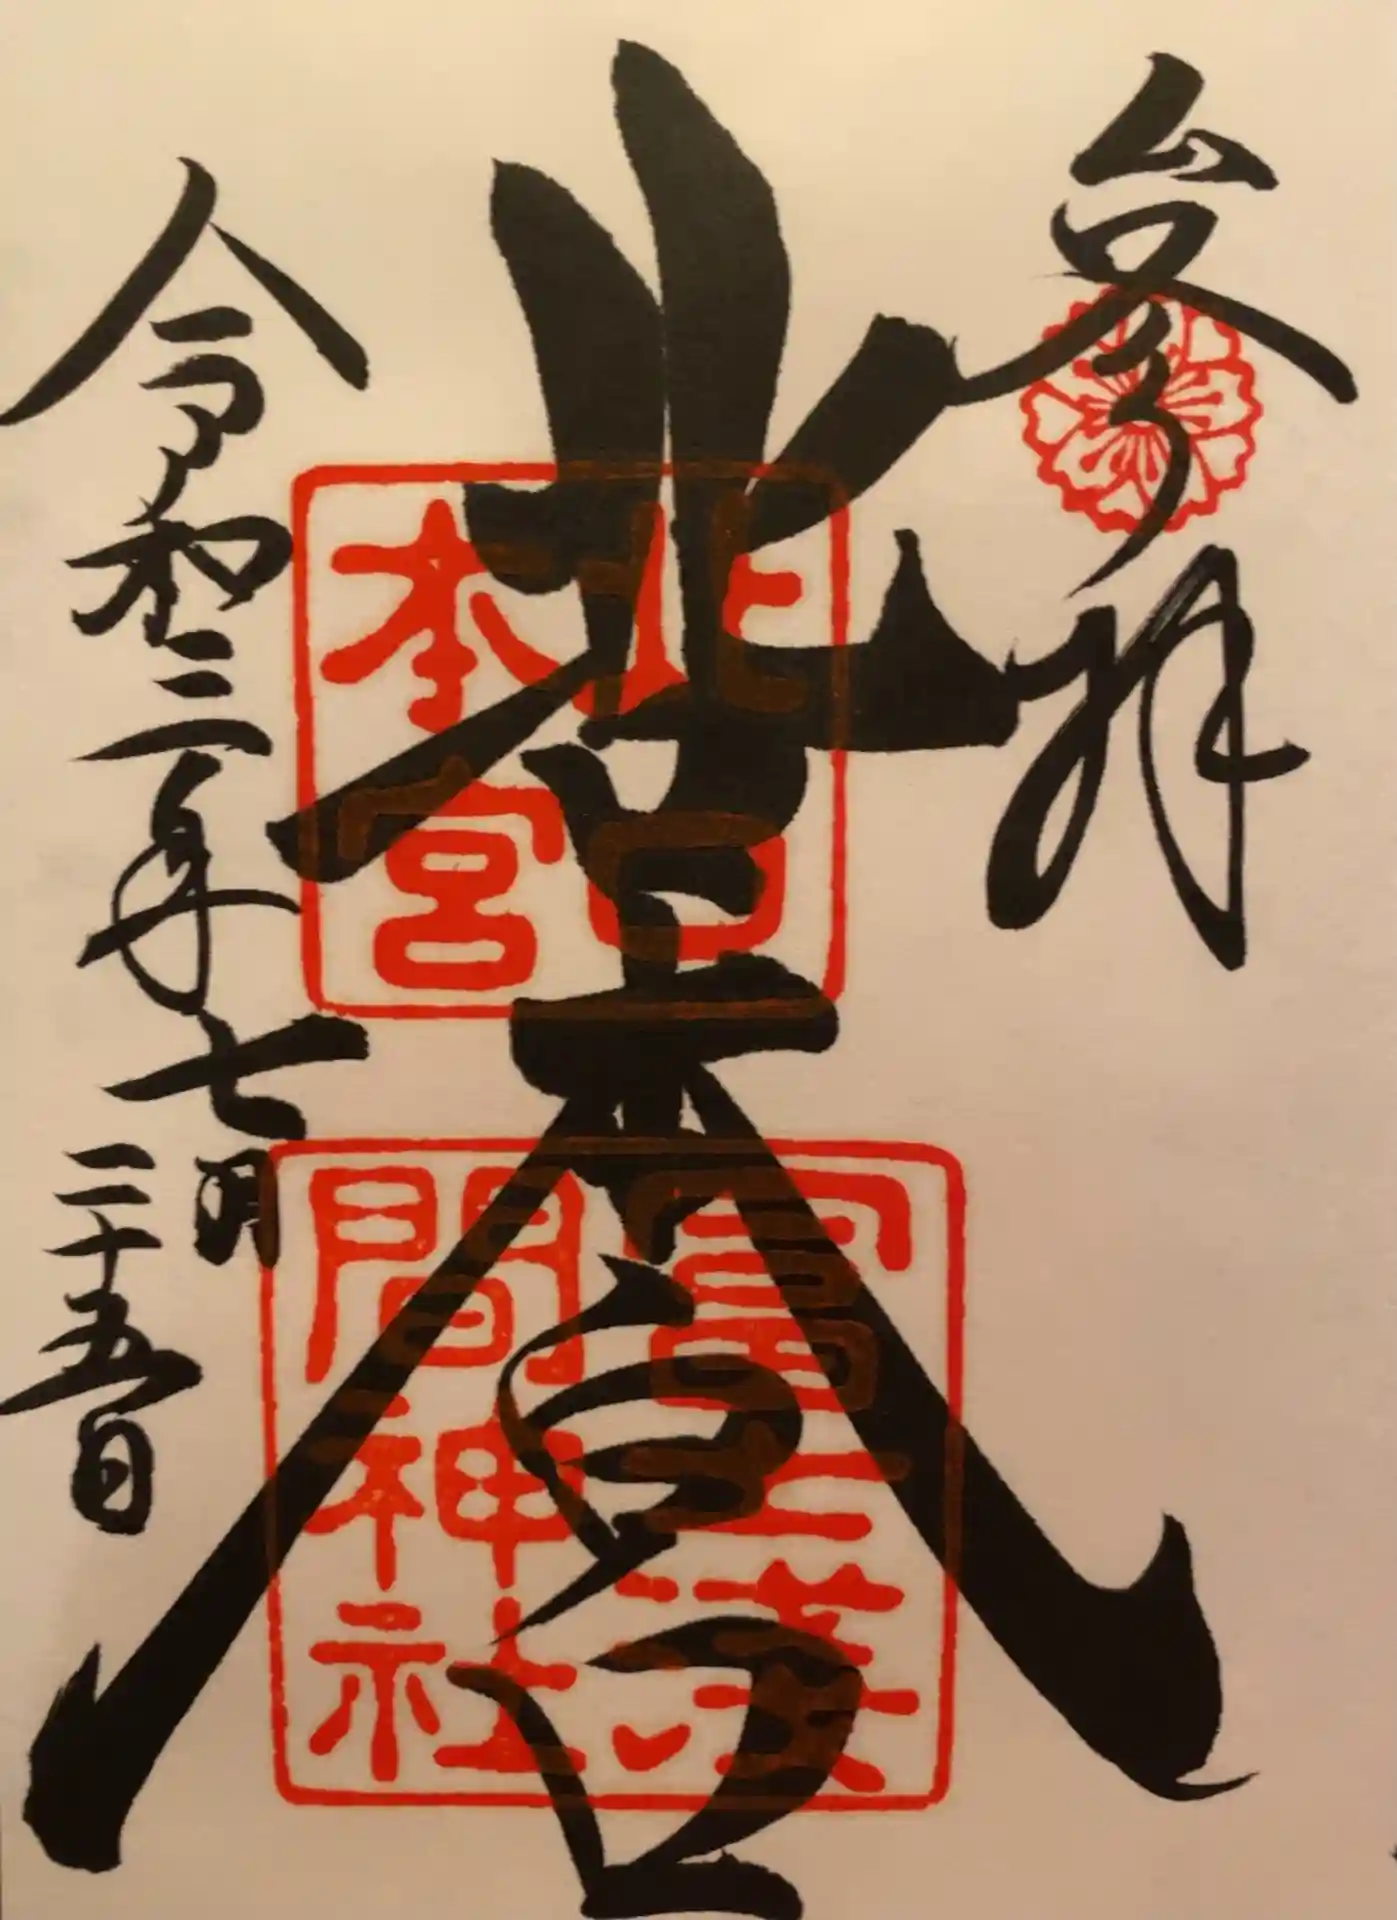 參拝
北口本宮
北口
本宮
冨士淺
間神社
令和三年七月二十五日